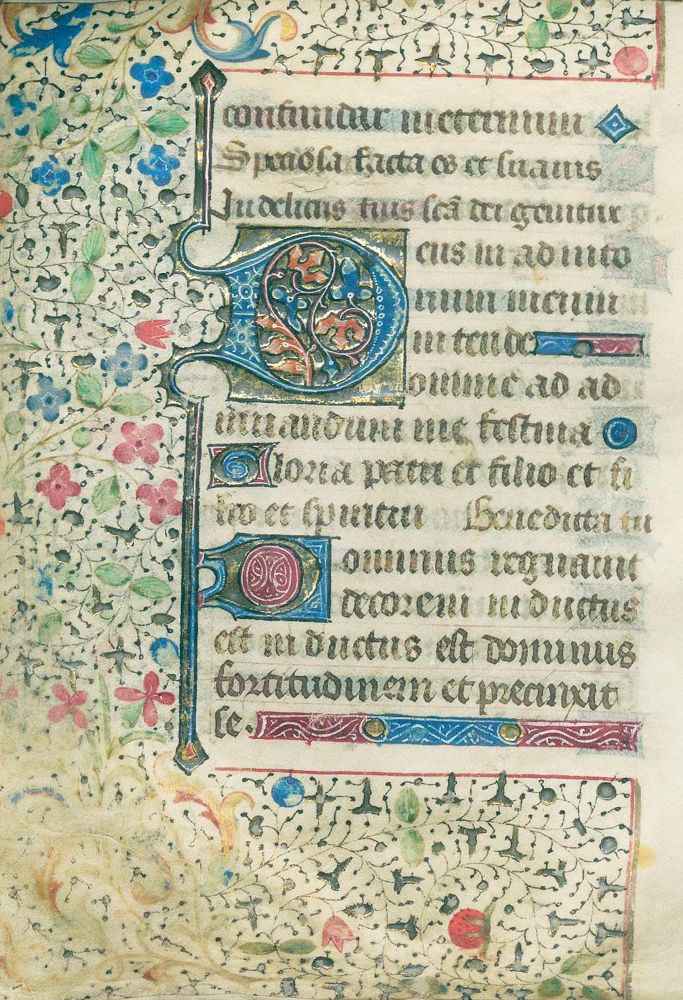 confundar in eternum
Speciosa facta es et suauis
In deliciis tuis scā dei genitrix
Deus in adiuto
rium meum
intende
Domine ad ad
iuuandum me festina
Gloria patri et filio et fi
lio et spiritui Benedicta tu
Dominus regnauit
decorem inductus
est inductus est dominus
fortitudinem et precinxit
se.